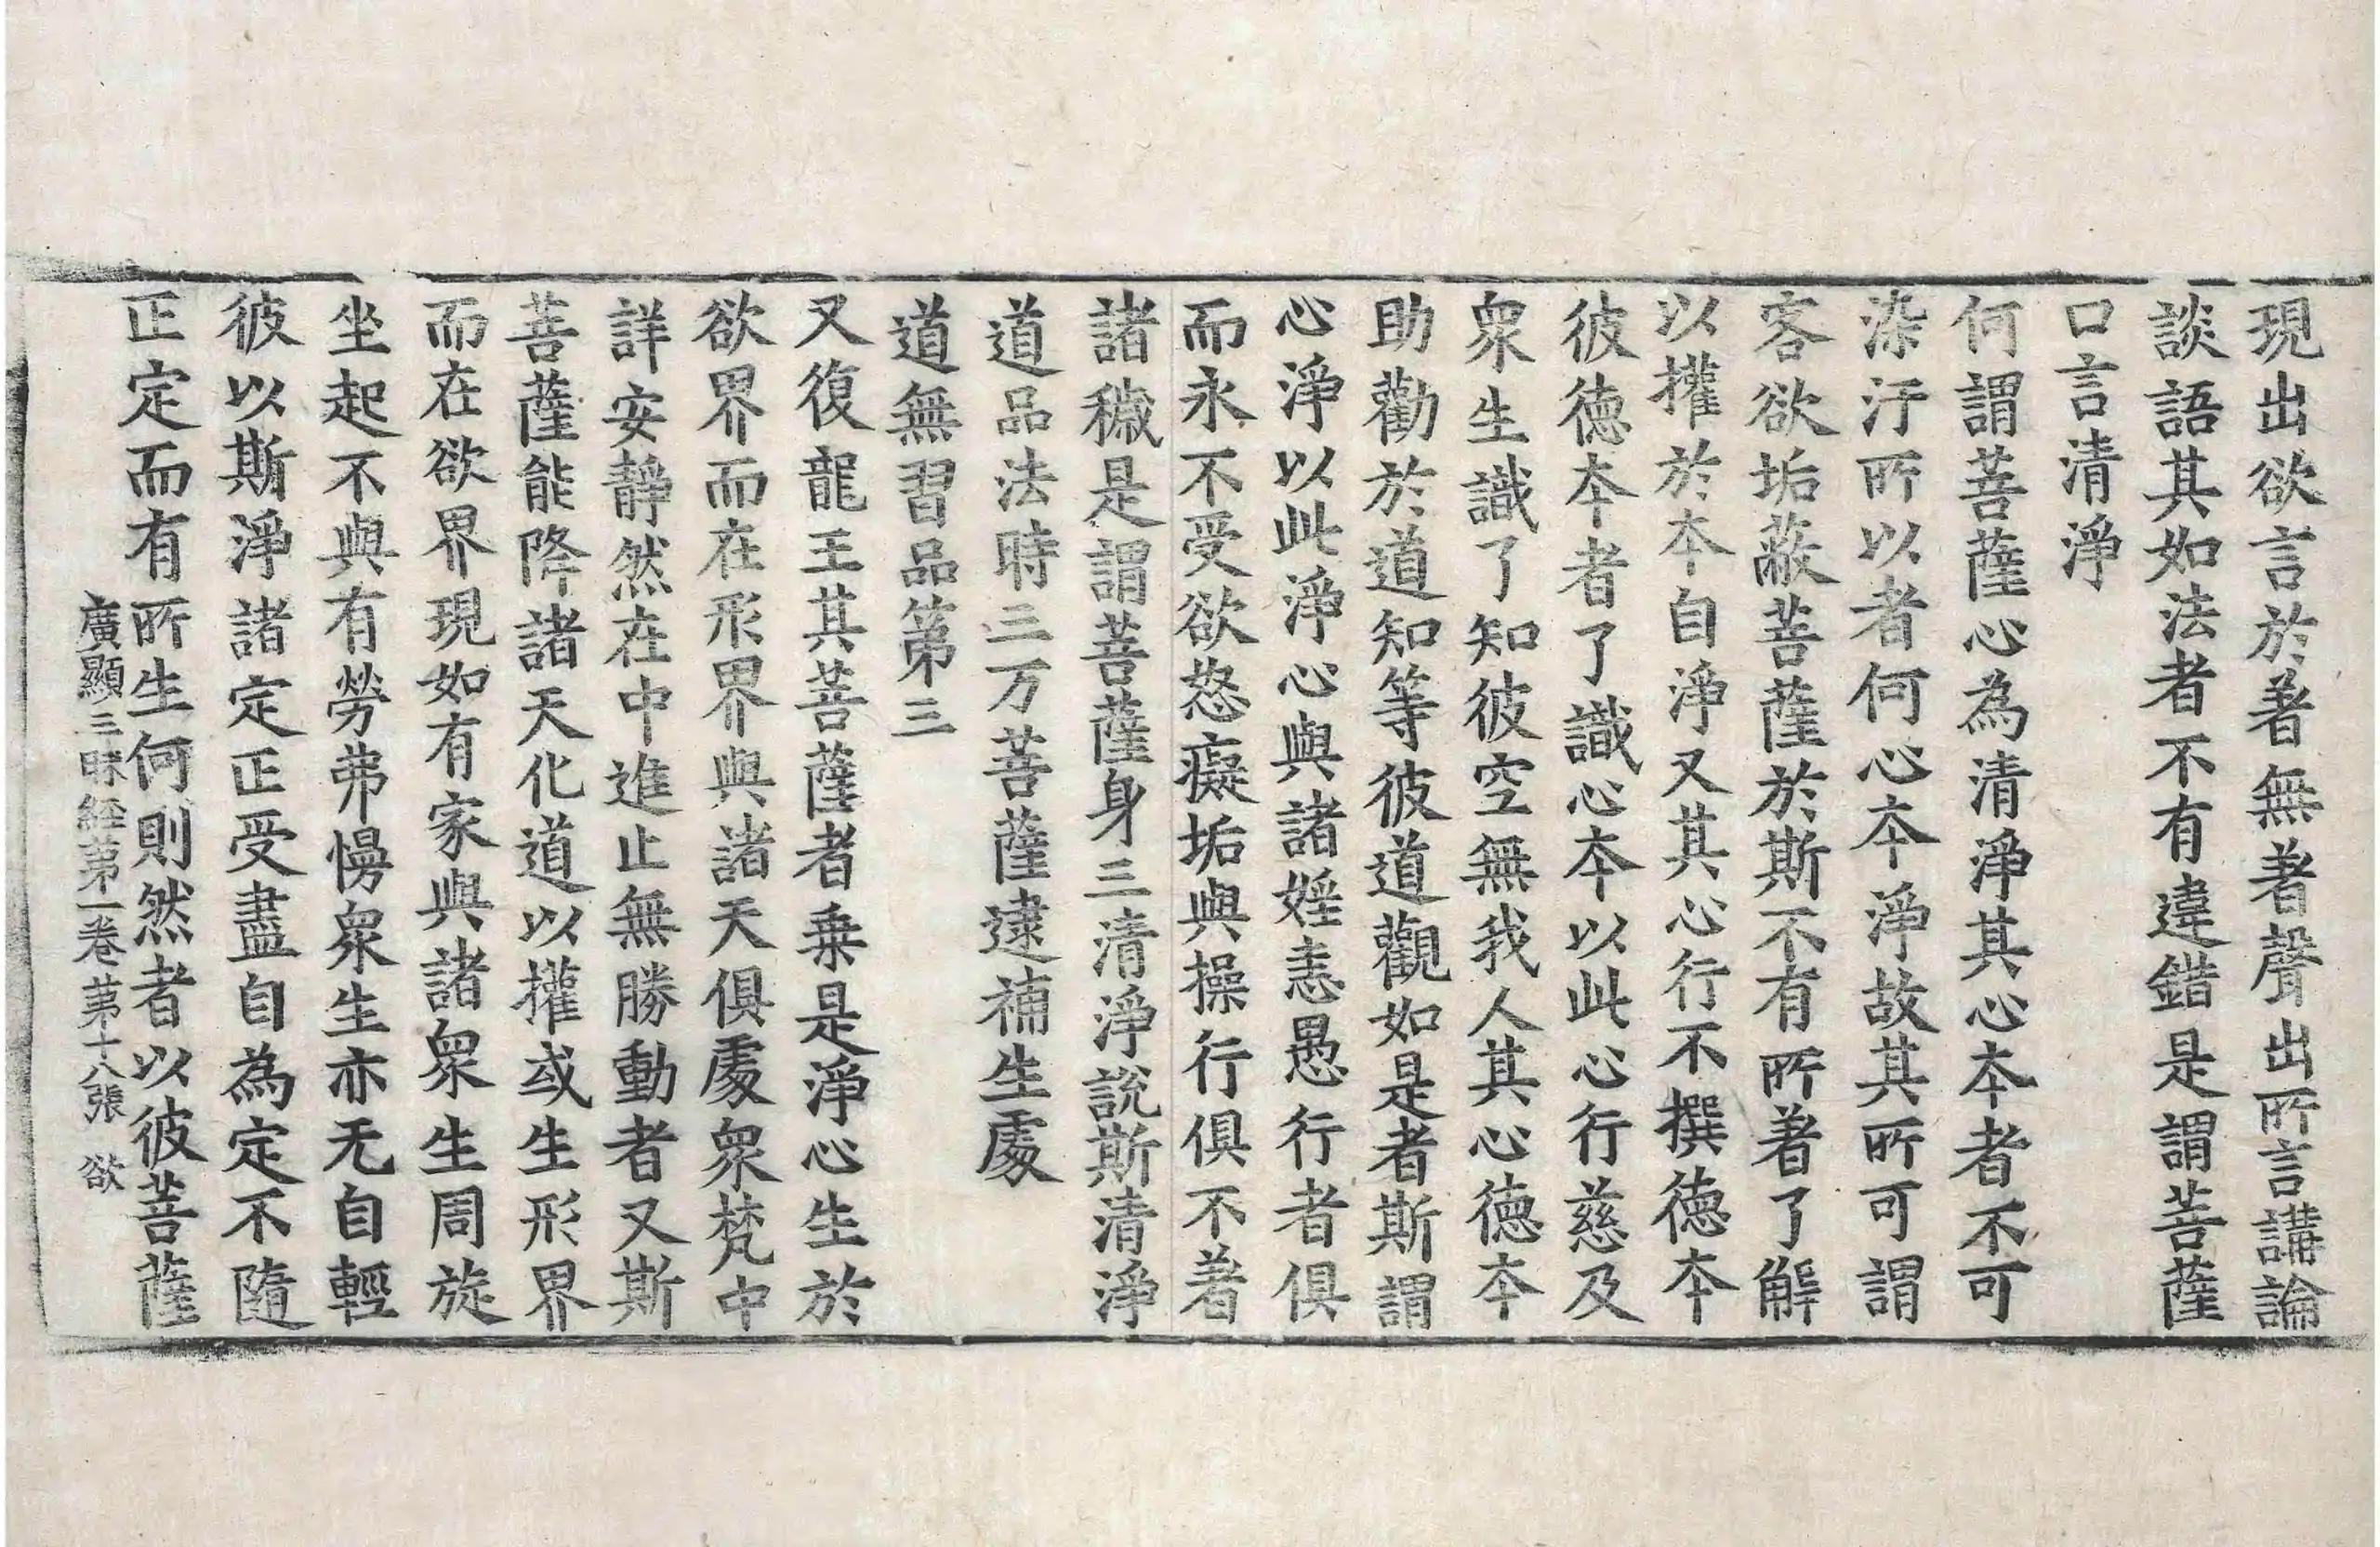 現出欲言於著無著聲出所言講論
談語其如法者不有違錯是謂菩薩
口言清淨
何謂菩薩心為清淨其心本者不可
染汙所以者何心本淨故其所可謂
客欲垢蔽菩薩於斯不有所著了解
以權於本自淨又其心行不撰德本
彼德本者了識心本以此心行慈及
衆生識了知彼空無我人其心德本
助勸於道知等彼道觀如是者斯謂
心淨以此淨心與諸婬恚愚行者俱
而永不受欲怒癡垢與操行俱不著
諸穢是謂菩薩身三清淨說斯清淨
道品法時三万菩薩逮補生處
道無習品第三
又復龍王其菩薩者乗是淨心生於
欲界而在形界與諸天俱處衆梵中
詳安靜然在中進止無勝動者又斯
菩薩能降諸天化道以權或生形界
而在欲界現如有家與諸衆生周旋
坐起不與有勞弗慢衆生亦无自輕
彼以斯淨諸定正受盡自為定不隨
正定而有所生何則然者以彼菩薩
廣顯三昧經第一卷第十八張 欲